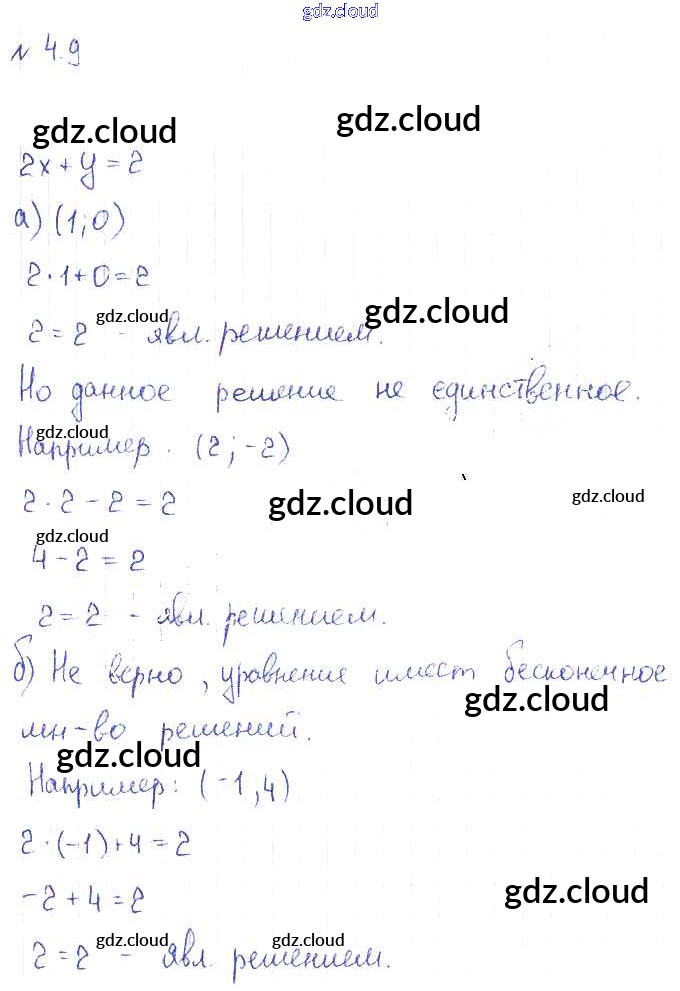 gdz.cloud
№ 4.9
gdz.cloud gdz.cloud
2x + y = 2
а) (1; 0)
2 · 1 + 0 = 2
gdz.cloud gdz.cloud
2 = 2 - явл. решением.
Но данное решение не единственное.
gdz.cloud
Например. (2; -2)
2 · 2 - 2 = 2
gdz.cloud gdz.cloud
gdz.cloud
4 - 2 = 2
2 = 2 - явл. решением.
б) Не верно, уравнение имеет бесконечное
gdz.cloud
мн-во решений.
gdz.cloud
Например: (-1, 4)
2 · (-1) + 4 = 2
-2 + 4 = 2
gdz.cloud
gdz.cloud gdz.cloud
2 = 2 - явл. решением.